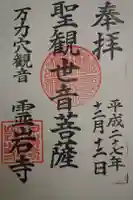 奉拝
平成二七年
十二月十二日
聖観世音菩薩
万刀穴観音
霊岩寺